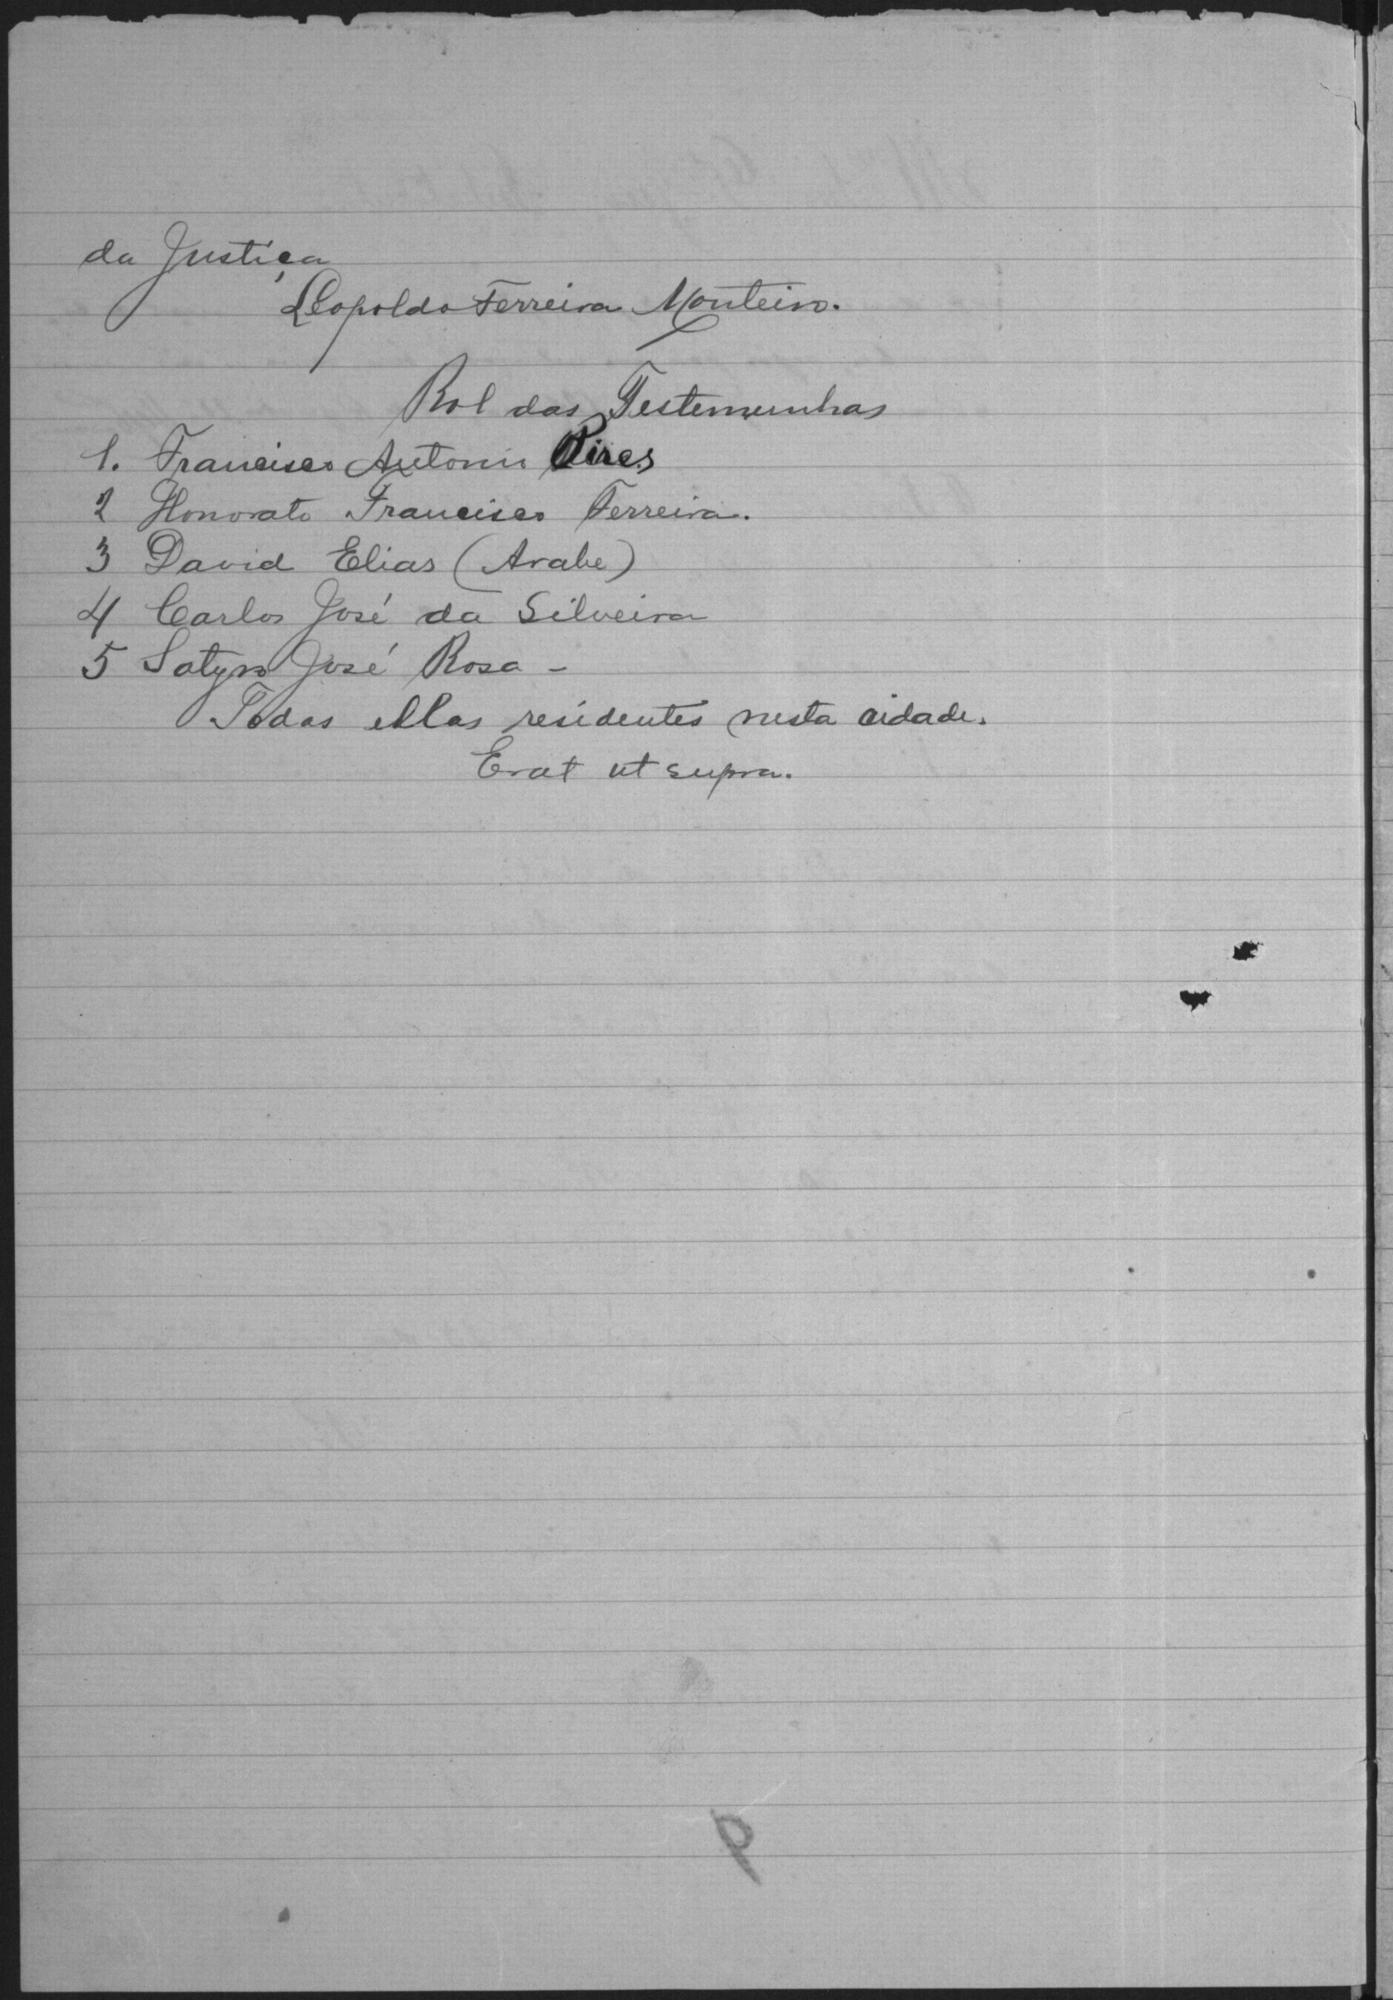 da Justiça
Leopoldo Ferreira Monteiro.
Rol das Testemunhas
1. Francisco Antonio Pires
2 Honorato Francisco Ferreira.
3 David Elias (Arabe)
4 Carlos José da Silveira
5 Satyro José Rosa -
Todas ellas residentes nesta cidade.
Erat ut supra.